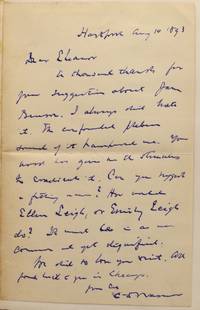 Hartford Aug 14 1893
Dear Eleanor
A thousand thanks for
your suggestion about Jane
Benson. I always did hate
it. The confounded plebeian
sound of it haunted me. You
have given me a stimulus
to eradicate it. Can you suggest
a fitting name? How would
Ellen Leigh, or Emily Leigh
do? It must be in an un
common yet dignified.
We did so love your visit. All
send love to you in Chicago.
Yours